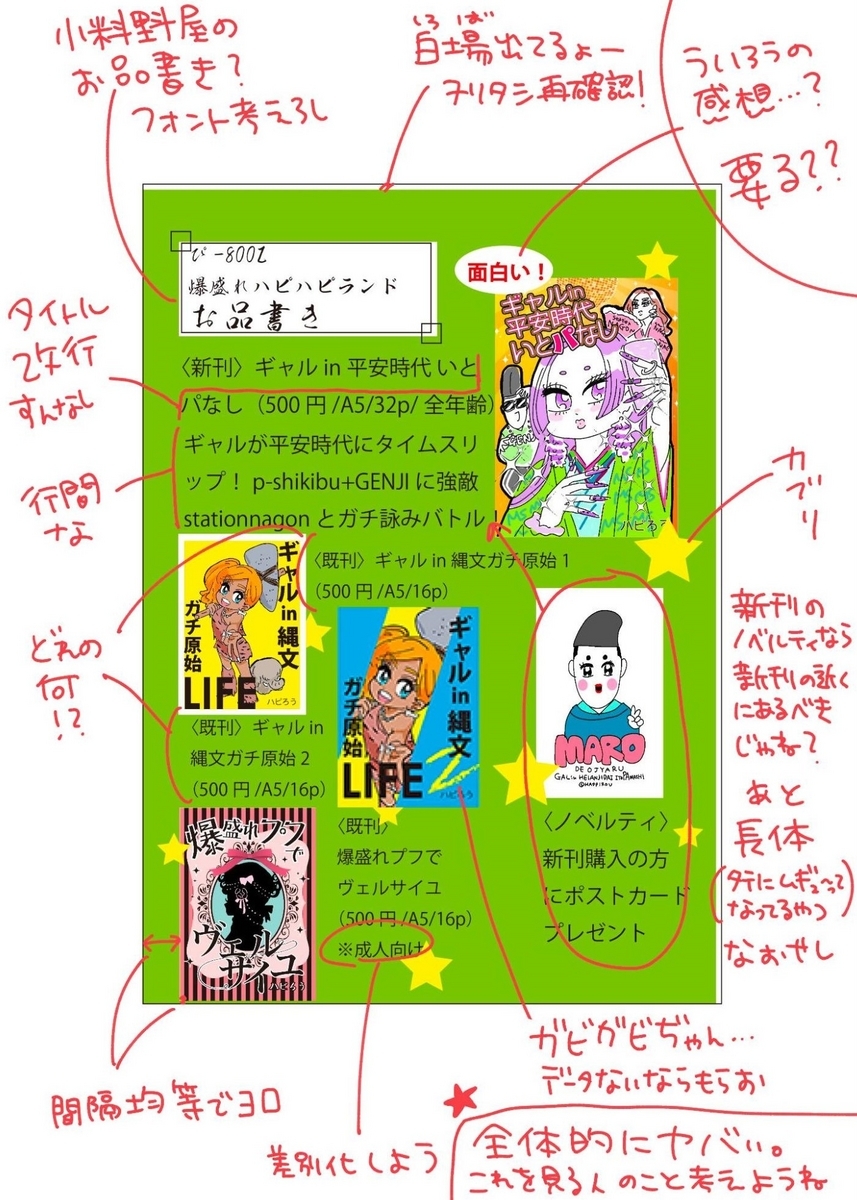 小料理屋の
お品書き？
フォント考えろし
しろば
白場出てるよー
ヌリタシ再確認！
ういろうの
感想…？
要る？？
ぴ-8001
爆盛れハピハピランド
お品書き
面白い！
ギャルin
平安時代
いとパなし
ハピろう
タイトル
改行
すんなし
〈新刊〉ギャル in 平安時代 いと
パなし（500 円 /A5/32p/ 全年齢）
行間
な
ギャルが平安時代にタイムスリ
ップ！ p-shikibu+GENJI に強敵
stationnagon とガチ詠みバトル！
カブリ
どれの
何
！？
ギャルin縄文
ガチ原始
LIFE
ハピろう
〈既刊〉ギャル in 縄文ガチ原始 1
（500 円 /A5/16p）
〈既刊〉ギャル in
縄文ガチ原始 2
（500 円 /A5/16p）
ギャルin縄文
ガチ原始
LIFE
2
ハピろう
MARO
DE OJYARU
GAL in HEIANJIDAI ITOPANASHI
@HAPPIROU
新刊の
ノベルティなら
新刊の近く
にあるべき
じゃね？
あと
長体
（タテにムギューって
なってるやつ）
なおせし
〈ノベルティ〉
新刊購入の方
にポストカード
プレゼント
爆盛れプフで
ヴェルサイユ
ハピろう
〈既刊〉
爆盛れプフで
ヴェルサイユ
（500 円 /A5/16p）
※成人向け
間隔均等でヨロ
差別化しよう
ガビガビぢゃん…
データないならもらお
全体的にヤバい。
これを見る人のこと考えようね